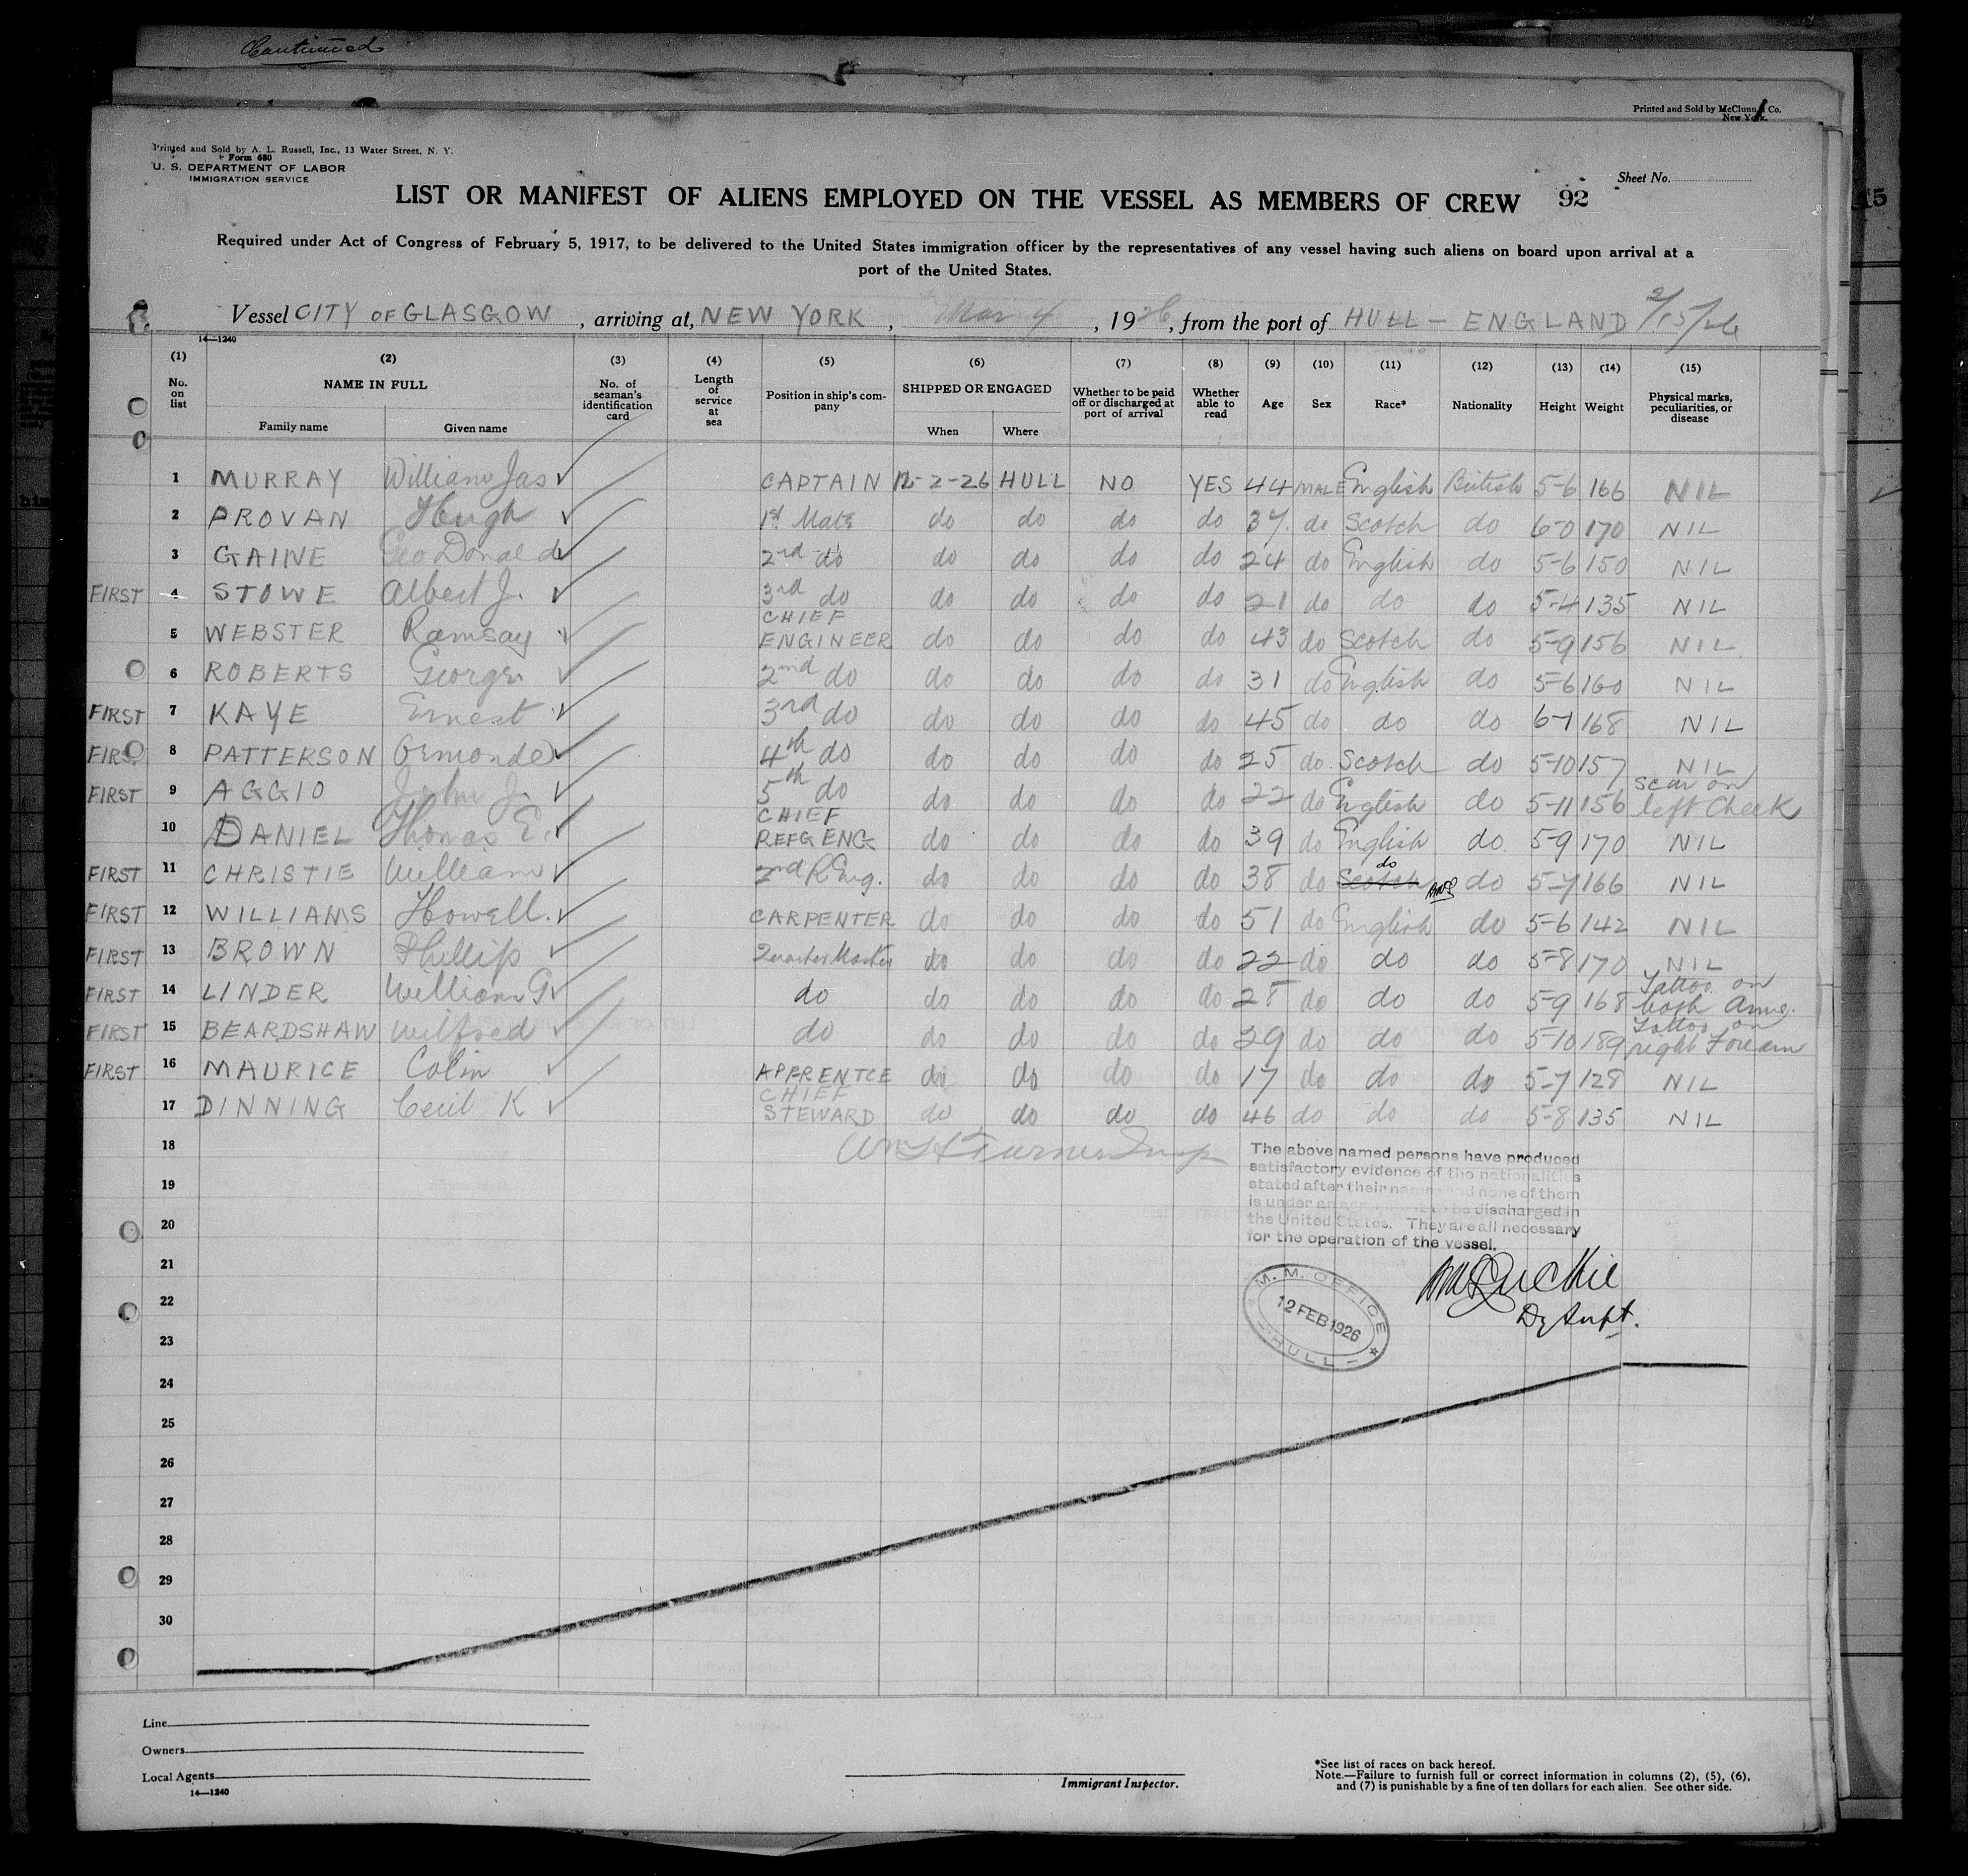 Continued
Printed and Sold by McClunn & Co.
New York.
Printed and Sold by A. L. Russell, Inc., 13 Water Street, N. Y.
Form 680
U. S. DEPARTMENT OF LABOR
IMMIGRATION SERVICE
Sheet No.
LIST OR MANIFEST OF ALIENS EMPLOYED ON THE VESSEL AS MEMBERS OF CREW 92
15
Required under Act of Congress of February 5, 1917, to be delivered to the United States immigration officer by the representatives of any vessel having such aliens on board upon arrival at a
port of the United States.
Vessel CITY OF GLASGOW, arriving at, NEW YORK, Mar 4, 1926, from the port of HULL - ENGLAND 2/15/26
14—1240
(1) No. on list (2) NAME IN FULL Family name Given name (3) No. of seaman's identification card (4) Length of service at sea (5) Position in ship's company (6) SHIPPED OR ENGAGED When Where (7) Whether to be paid off or discharged at port of arrival (8) Whether able to read (9) Age (10) Sex (11) Race* (12) Nationality (13) Height (14) Weight (15) Physical marks, peculiarities, or disease
1 MURRAY William Jas CAPTAIN 12-2-26 HULL NO YES 44 MALE English British 5-6 166 NIL
2 PROVAN Hugh 1st Mate do do do do 37 do Scotch do 6-0 170 NIL
3 GAINE Geo Donald 2nd do do do do do 24 do English do 5-6 150 NIL
FIRST 4 STOWE Albert J. 3rd do do do do do 21 do do do 5-4 135 NIL
5 WEBSTER Ramsay CHIEF ENGINEER do do do do 43 do Scotch do 5-9 156 NIL
6 ROBERTS George 2nd do do do do do 31 do English do 5-6 160 NIL
FIRST 7 KAYE Ernest 3rd do do do do do 45 do do do 6-1 168 NIL
FIRST 8 PATTERSON Ormonde 4th do do do do do 25 do Scotch do 5-10 157 NIL
FIRST 9 AGGIO John J. 5th do do do do do 22 do English do 5-11 156 scar on left Cheek
10 DANIEL Thomas E. CHIEF REFG ENG do do do do 39 do English do 5-9 170 NIL
FIRST 11 CHRISTIE William 2nd R Eng. do do do do 38 do Scotch do do 5-7 166 NIL
FIRST 12 WILLIAMS Howell. CARPENTER do do do do 51 do English do 5-6 142 NIL
FIRST 13 BROWN Phillip Quarter Master do do do do 22 do do do 5-8 170 NIL
FIRST 14 LINDER William G do do do do do 28 do do do 5-9 168 Tattoo on both Arms.
FIRST 15 BEARDSHAW Wilfred do do do do do 29 do do do 5-10 189 Tattoo on right Forearm
FIRST 16 MAURICE Colin APPRENTCE do do do do 17 do do do 5-7 128 NIL
17 DINNING Cecil K CHIEF STEWARD do do do do 46 do do do 5-8 135 NIL
18
The above named persons have produced
satisfactory evidence of the nationalities
stated after their names and none of them
is under an agreement to be discharged in
the United States. They are all necessary
for the operation of the vessel.
19
20
21
22
M. M. OFFICE
12 FEB 1926
HULL
Dy Supt.
23
24
25
26
27
28
29
30
Line
Owners
Local Agents
14—1240
Immigrant Inspector.
*See list of races on back hereof.
Note.—Failure to furnish full or correct information in columns (2), (5), (6),
and (7) is punishable by a fine of ten dollars for each alien. See other side.